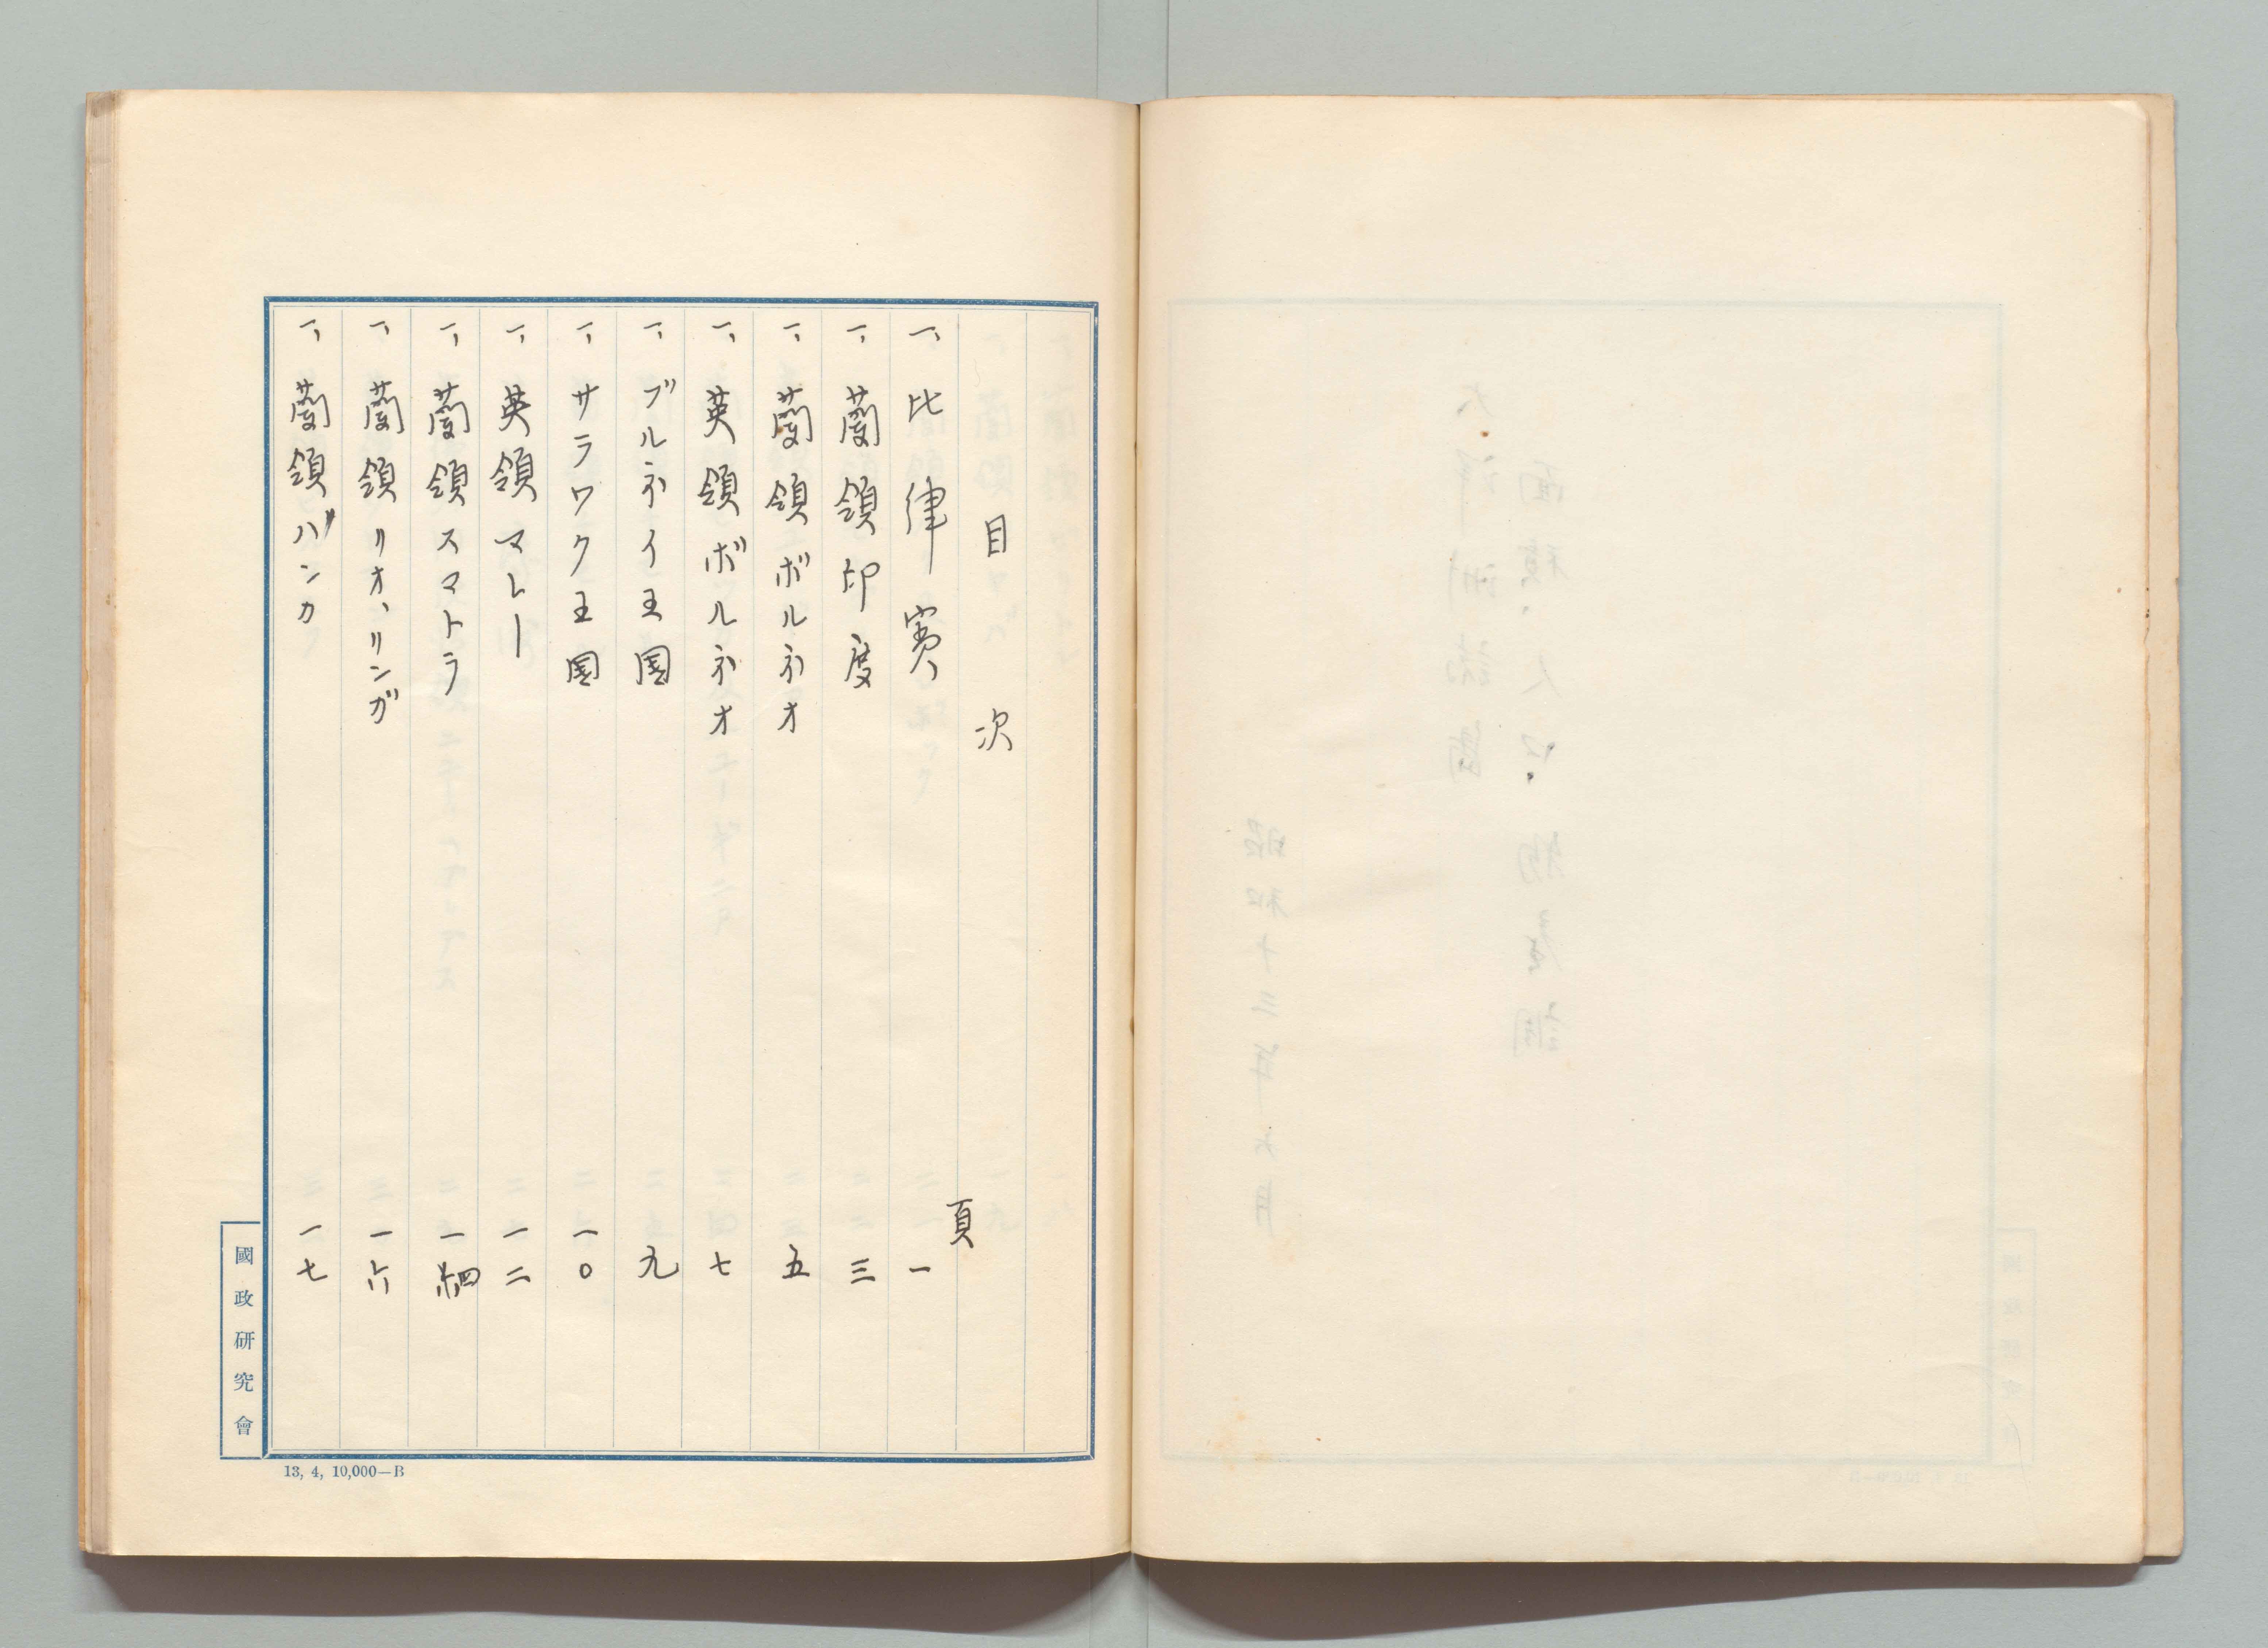 目次
頁
一、比律賓 一
一、蘭領印度 三
一、蘭領ボルネオ 五
一、英領ボルネオ 七
一、ブルネイ王国 九
一、サラワク王国 一〇
一、英領マレー 一二
一、蘭領スマトラ 一四
一、蘭領リオ、リンガ 一六
一、蘭領バンカ 一七
國政研究會
13, 4, 10,000—B